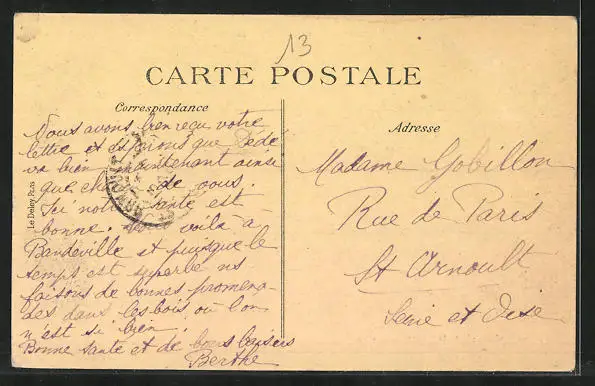 13
CARTE POSTALE
Correspondance
Nous avons bien reçu votre
lettre et espérons que Dédé
va bien maintenant ainsi
que de vous.
Ici notre santé est
bonne. voilà à
Bandeville et puisque le
temps est superbe ns
faisons de bonnes promena-
des dans les bois où l'on
n'est si bien.
Bonne santé et de bons baisers
Berthe
Adresse
Madame Gobillon
Rue de Paris
St Arnoult
Seine et Oise
Le Deley, Paris